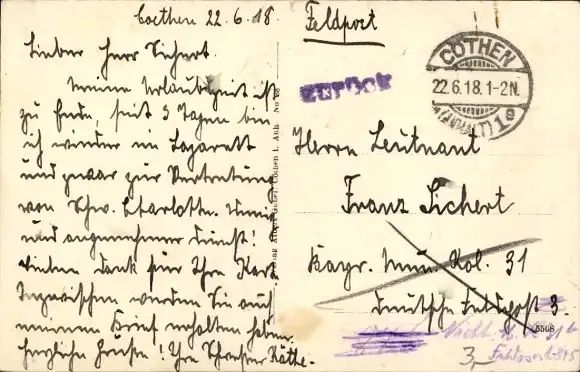 Coethen 22.6.18.
Lieber Herr Sichert.
Meine Urlaubszeit ist
zu Ende, seit 3 Tagen bin
ich wieder im Lazarett
und zwar zur Vertretung
von Schw. Charlotte.
und angenehmer Dienst!
Vielen Dank für Ihre Karte
Inzwischen werden Sie auch
meinen Brief erhalten haben.
Herzliche Grüsse! Ihre Schwester Käthe.
Feldpost
zurück
CÖTHEN
22.6.18.1-2N.
(ANHALT) 1
Herrn Leutnant
Franz Sichert
Bayr. Mun. Kol. 31
Deutsche Feldpost 3.
5508